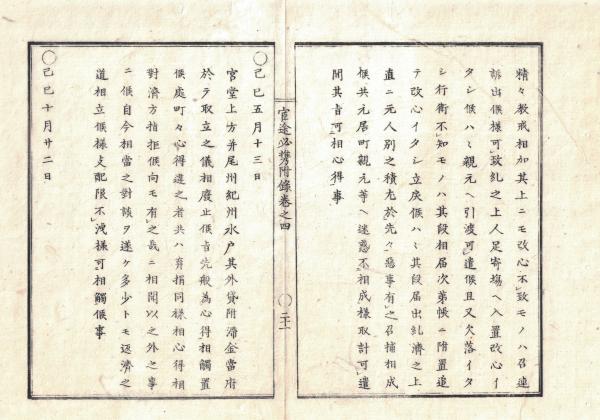 精々教戒相加其上ニモ改心不致モノハ召連
訴出候様可致糺之上人足寄場ヘ入置改心イ
タシ候ハヽ親元ヘ引渡可遣候且又欠落イタ
シ行衛不知モノハ其段相届次第帳ニ附置追
テ改心イタシ立戻候ハヽ其段届出糺済之上
直ニ元人別之積尤於先々悪事有之召捕相成
候共元居町親元等ヘ迷惑不相成様取計可遣
間其旨可相心得事
官途必携附録巻之四
〇 二十一
〇己巳五月十三日
官堂上方并尾州紀州水戸其外貸附滞金当府
於テ取立之儀相廃止候旨先般為心得相触置
候処町々心得違之者共ハ弃捐同様相心得相
対済方指拒候向モ有之哉ニ相聞以之外之事
ニ候自今相当之対談ヲ遂ケ多少トモ返済之
道相立候様支配限不洩様可相触候事
〇己巳十月廿二日